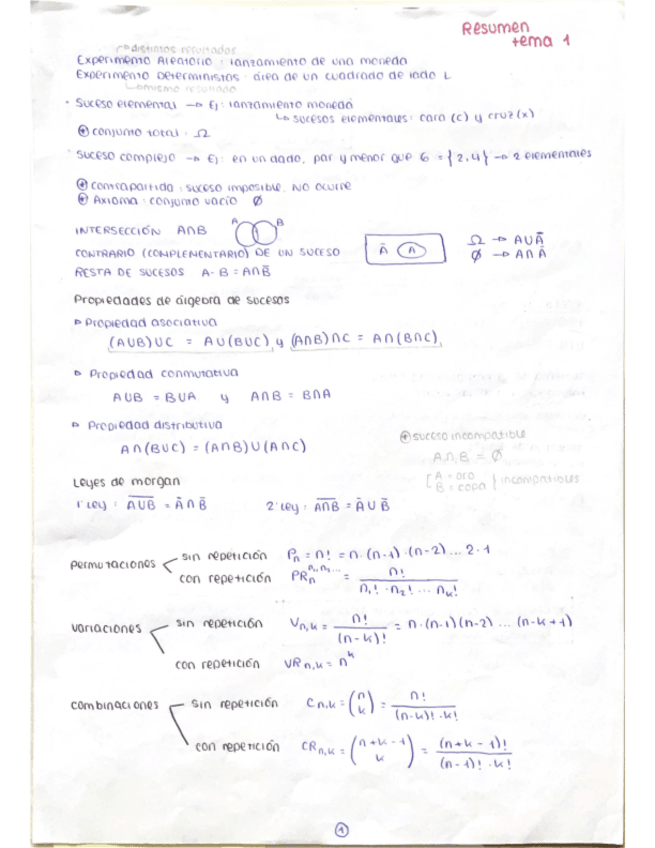 Resumen
tema 1
↱ distintos resultados
Experimento Aleatorio : lanzamiento de una moneda
Experimento Deterministas : área de un cuadrado de lado L
↳ mismo resultado
· Suceso elemental → Ej: lanzamiento moneda
↳ sucesos elementales: cara (c) y cruz (x)
⊛ conjunto total : Ω
· Suceso complejo → Ej: en un dado, par y menor que 6 = {2,4} → 2 elementales
⊛ contrapartida : suceso imposible. NO ocurre
⊛ Axioma : conjunto vacío ∅
INTERSECCIÓN A∩B A B
CONTRARIO (COMPLEMENTARIO) DE UN SUCESO Ā A Ω → A∪Ā
∅ → A∩Ā
RESTA DE SUCESOS A-B = A∩B̄
Propiedades de álgebra de sucesos
▹ Propiedad asociativa
(A∪B)∪C = A∪(B∪C) y (A∩B)∩C = A∩(B∩C)
▹ Propiedad conmutativa
A∪B = B∪A y A∩B = B∩A
▹ Propiedad distributiva
A∩(B∪C) = (A∩B)∪(A∩C)
⊛ suceso incompatible
A∩B = ∅
[A = oro
B = copa} incompatibles
Leyes de morgan
1ª Ley : \overline{A∪B} = Ā∩B̄ 2ª Ley : \overline{A∩B} = Ā∪B̄
permutaciones
sin repetición Pn = n! = n·(n-1)·(n-2)... 2·1
con repetición PRn^{n₁,n₂...} = n! / n₁!·n₂!... nk!
variaciones
sin repetición Vn,k = n! / (n-k)! = n·(n-1)(n-2) ... (n-k+1)
con repetición VRn,k = n^k
combinaciones
sin repetición Cn,k = (n k) = n! / (n-k)!·k!
con repetición CRn,k = (n+k-1 k) = (n+k-1)! / (n-1)!·k!
1